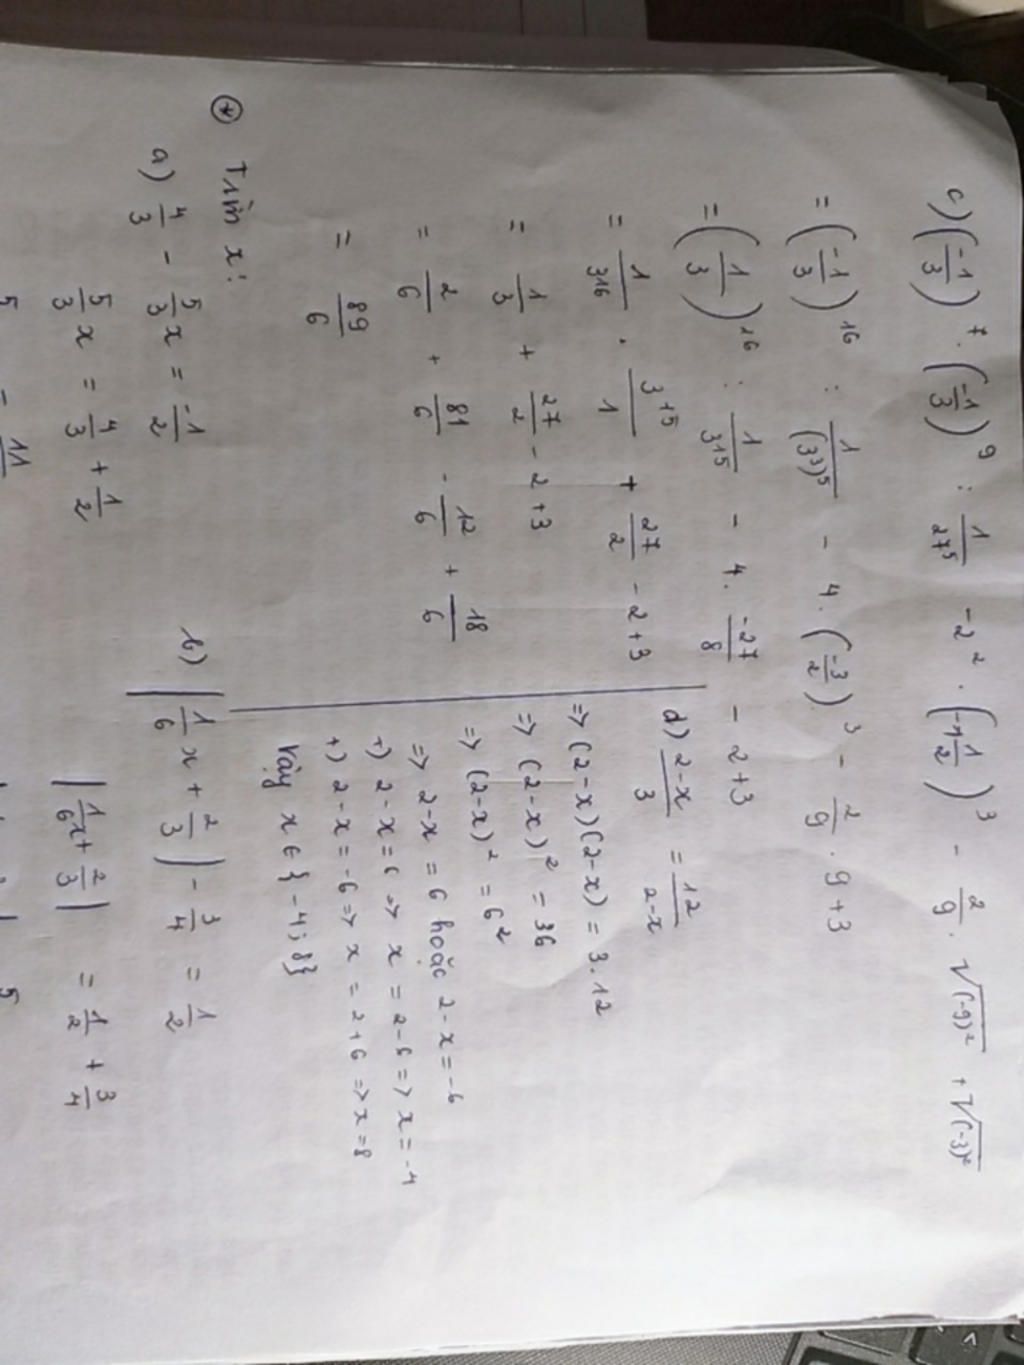 c) (-1/3)^7 . (-1/3)^9 : 1/27^5 - 2^2 . (-1 1/2)^3 - 2/9 . √(-9)^2 + √(-3)^2
= (-1/3)^16 : 1/(3^3)^5 - 4 . (-3/2)^3 - 2/9 . 9 + 3
= (1/3)^16 : 1/3^15 - 4 . -27/8 - 2 + 3
= 1/3^16 . 3^15/1 + 27/2 - 2 + 3
= 1/3 + 27/2 - 2 + 3
= 2/6 + 81/6 - 12/6 + 18/6
= 89/6
d) 2-x/3 = 12/2-x
=> (2-x)(2-x) = 3.12
=> (2-x)^2 = 36
=> (2-x)^2 = 6^2
=> 2-x = 6 hoặc 2-x = -6
+) 2-x = 6 => x = 2-6 => x = -4
+) 2-x = -6 => x = 2+6 => x = 8
Vậy x ∈ {-4; 8}
* Tìm x:
a) 4/3 - 5/3 x = -1/2
5/3 x = 4/3 + 1/2
b) |1/6 x + 2/3| - 3/4 = 1/2
|1/6 x + 2/3| = 1/2 + 3/4